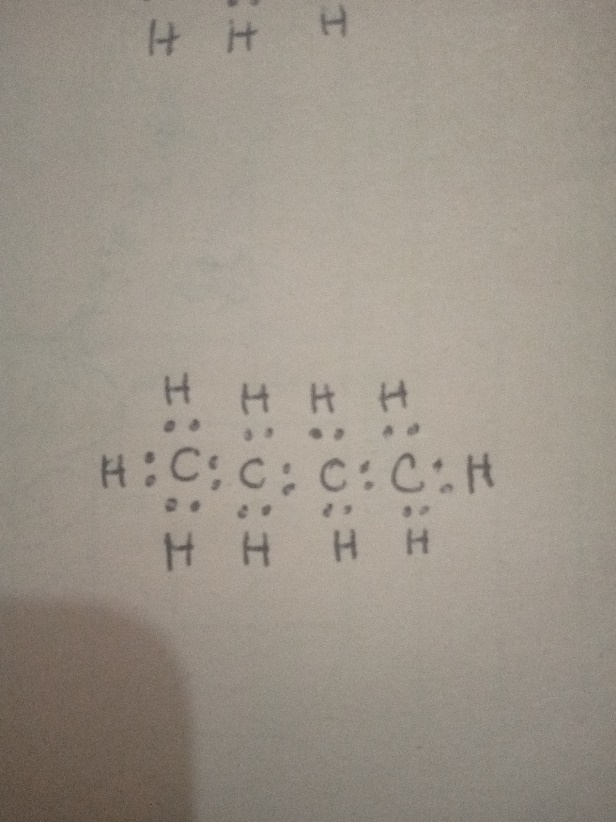 H H H
H H H H
H : C : C : C : C : H
H H H H